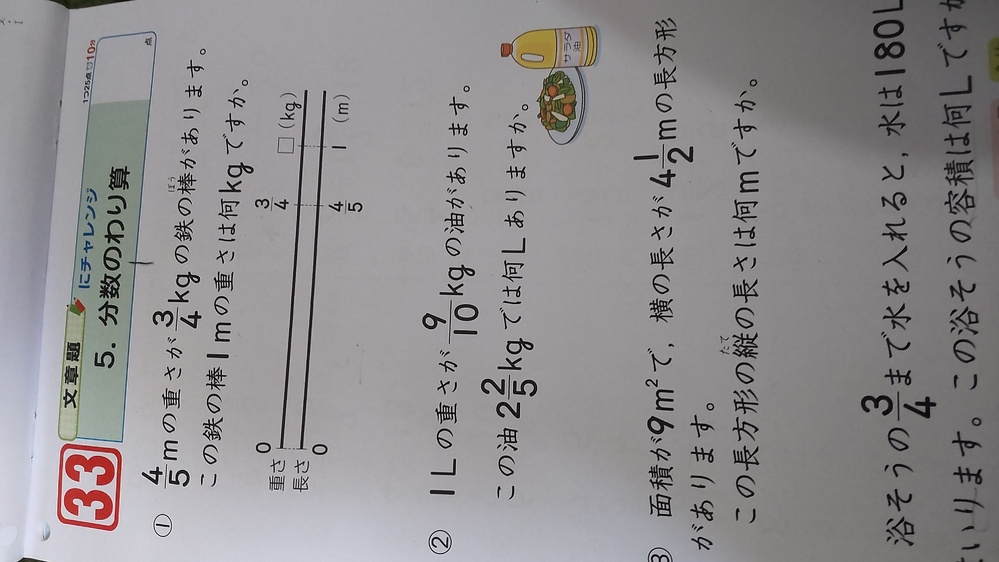 33
文章題 にチャレンジ
5. 分数のわり算
1つ25点 10分
点
① 4/5mの重さが3/4kgの鉄の棒があります。
ぼう
この鉄の棒1mの重さは何kgですか。
0 3/4 □(kg)
重さ
長さ
0 4/5 1 (m)
② 1Lの重さが9/10kgの油があります。
この油2 2/5kgでは何Lありますか。
サラダ
油
③ 面積が9m²で,横の長さが4 1/2mの長方形
があります。
たて
この長方形の縦の長さは何mですか。
浴そうの3/4まで水を入れると,水は180L
いります。この浴そうの容積は何Lですか